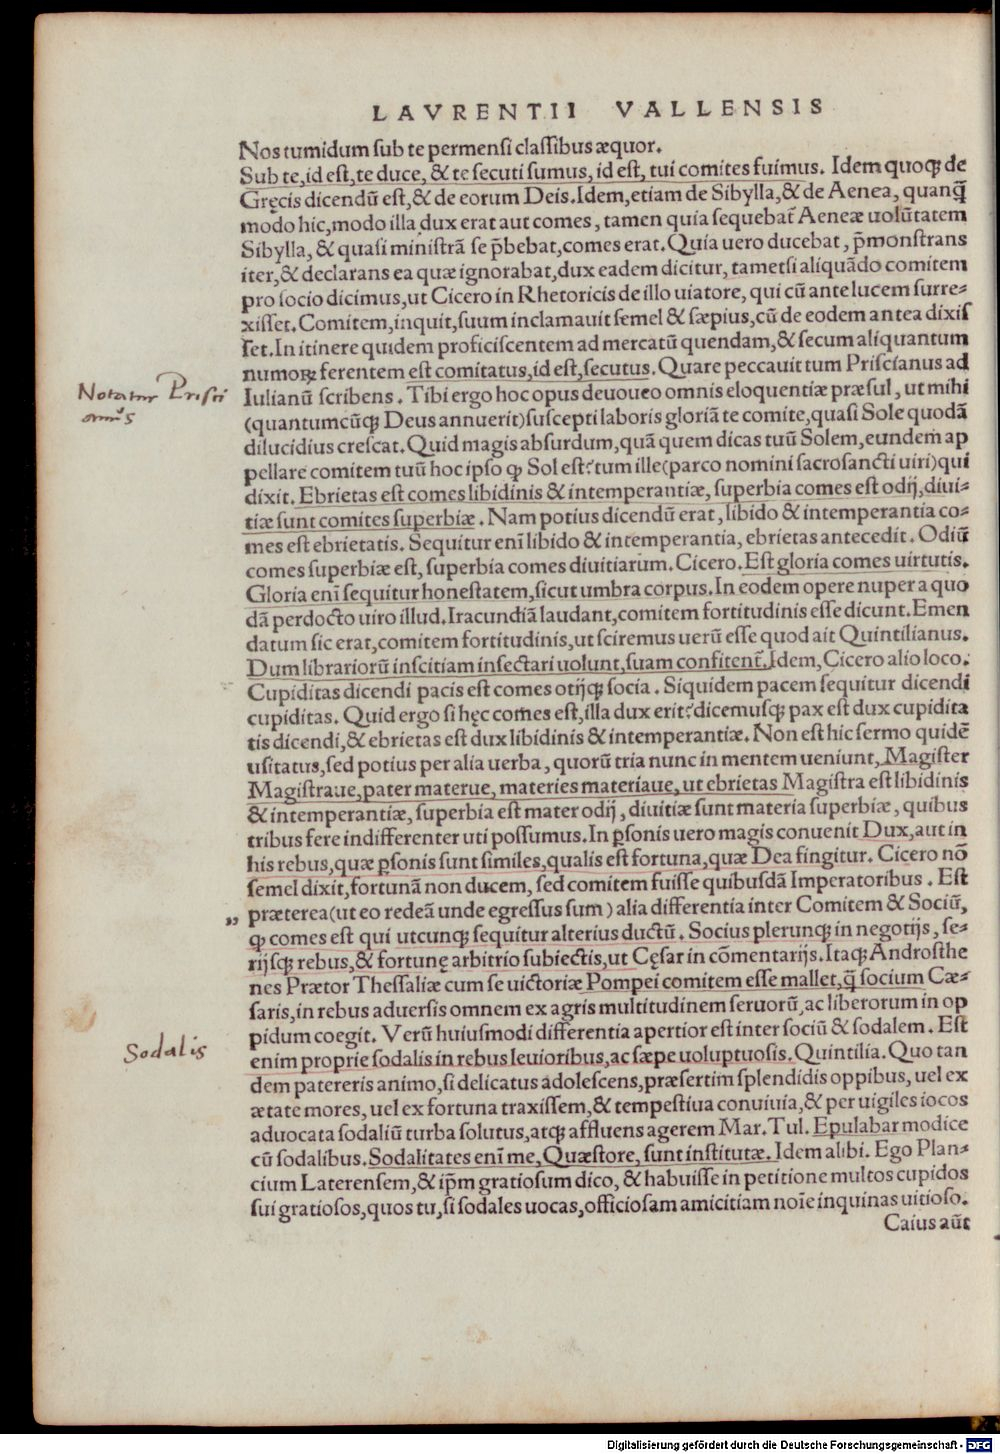 LAVRENTII VALLENSIS
Nos tumidum sub te permensi classibus æquor.
Sub te, id est, te duce, & te secuti sumus, id est, tui comites fuimus. Idem quoqꝫ de
Gręcis dicendū est, & de eorum Deis. Idem, etiam de Sibylla, & de Aenea, quanq̄
modo hic, modo illa dux erat aut comes, tamen quia sequebat̄ Aeneæ uolūtatem
Sibylla, & quasi ministrā se p̄bebat, comes erat. Quia uero ducebat, p̄monstrans
iter, & declarans ea quæ ignorabat, dux eadem dicitur, tametsi aliquādo comitem
pro socio dicimus, ut Cicero in Rhetoricis de illo uiatore, qui cū ante lucem surre-
xisset. Comitem, inquit, suum inclamauit semel & sæpius, cū de eodem antea dixis
set. In itinere quidem proficiscentem ad mercatū quendam, & secum aliquantum
numoꝝ ferentem est comitatus, id est, secutus. Quare peccauit tum Priscianus ad
Notatur Prisci
anus
Iulianū scribens. Tibi ergo hoc opus deuoueo omnis eloquentiæ præsul, ut mihi
(quantumcūqꝫ Deus annuerit) suscepti laboris gloriā te comite, quasi Sole quodā
dilucidius crescat. Quid magis absurdum, quā quem dicas tuū Solem, eundem ap
pellare comitem tuū hoc ipso ꝙ Sol est? tum ille (parco nomini sacrosancti uiri) qui
dixit. Ebrietas est comes libidinis & intemperantiæ, superbia comes est odij, diui-
tiæ sunt comites superbiæ. Nam potius dicendū erat, libido & intemperantia co-
mes est ebrietatis. Sequitur eni̅ libido & intemperantia, ebrietas antecedit. Odiū
comes superbiæ est, superbia comes diuitiarum. Cicero. Est gloria comes uirtutis.
Gloria eni̅ sequitur honestatem, sicut umbra corpus. In eodem opere nuper a quo
dā perdocto uiro illud. Iracundiā laudant, comitem fortitudinis esse dicunt. Emen
datum sic erat, comitem fortitudinis, ut sciremus uerū esse quod ait Quintilianus.
Dum librariorū inscitiam insectari uolunt, suam confitent̄. Idem, Cicero alio loco.
Cupiditas dicendi pacis est comes otijqꝫ socia. Siquidem pacem sequitur dicendi
cupiditas. Quid ergo si hęc comes est, illa dux erit? dicemusqꝫ pax est dux cupidita
tis dicendi, & ebrietas est dux libidinis & intemperantiæ. Non est hic sermo quidē
usitatus, sed potius per alia uerba, quorū tria nunc in mentem ueniunt, Magister
Magistraue, pater materue, materies materiaue, ut ebrietas Magistra est libidinis
& intemperantiæ, superbia est mater odij, diuitiæ sunt materia superbiæ, quibus
tribus fere indifferenter uti possumus. In ꝑsonis uero magis conuenit Dux, aut in
his rebus, quæ ꝑsonis sunt similes, qualis est fortuna, quæ Dea fingitur. Cicero nō
semel dixit, fortunā non ducem, sed comitem fuisse quibusdā Imperatoribus. Est
„ præterea (ut eo redeā unde egressus sum) alia differentia inter Comitem & Sociū,
ꝙ comes est qui utcunqꝫ sequitur alterius ductū. Socius plerunqꝫ in negotijs, se-
rijsqꝫ rebus, & fortunę arbitrio subiectis, ut Cęsar in cōmentarijs. Itaqꝫ Androsthe
nes Prætor Thessaliæ cum se uictoriæ Pompei comitem esse mallet, q̄ socium Cæ-
saris, in rebus aduersis omnem ex agris multitudinem seruorū, ac liberorum in op
pidum coegit. Verū huiusmodi differentia apertior est inter sociū & sodalem. Est
Sodalis
enim proprie sodalis in rebus leuioribus, ac sæpe uoluptuosis. Quintilia. Quo tan
dem patereris animo, si delicatus adolescens, præsertim splendidis oppibus, uel ex
ætate mores, uel ex fortuna traxissem, & tempestiua conuiuia, & per uigiles iocos
aduocata sodaliū turba solutus, atqꝫ affluens agerem Mar. Tul. Epulabar modice
cū sodalibus. Sodalitates eni̅ me, Quæstore, sunt institutæ. Idem alibi. Ego Plan-
cium Laterensem, & ip̄m gratiosum dico, & habuisse in petitione multos cupidos
sui gratiosos, quos tu, si sodales uocas, officiosam amicitiam noi̅e inquinas uitioso.
Caius aūt
Digitalisierung gefördert durch die Deutsche Forschungsgemeinschaft - DFG